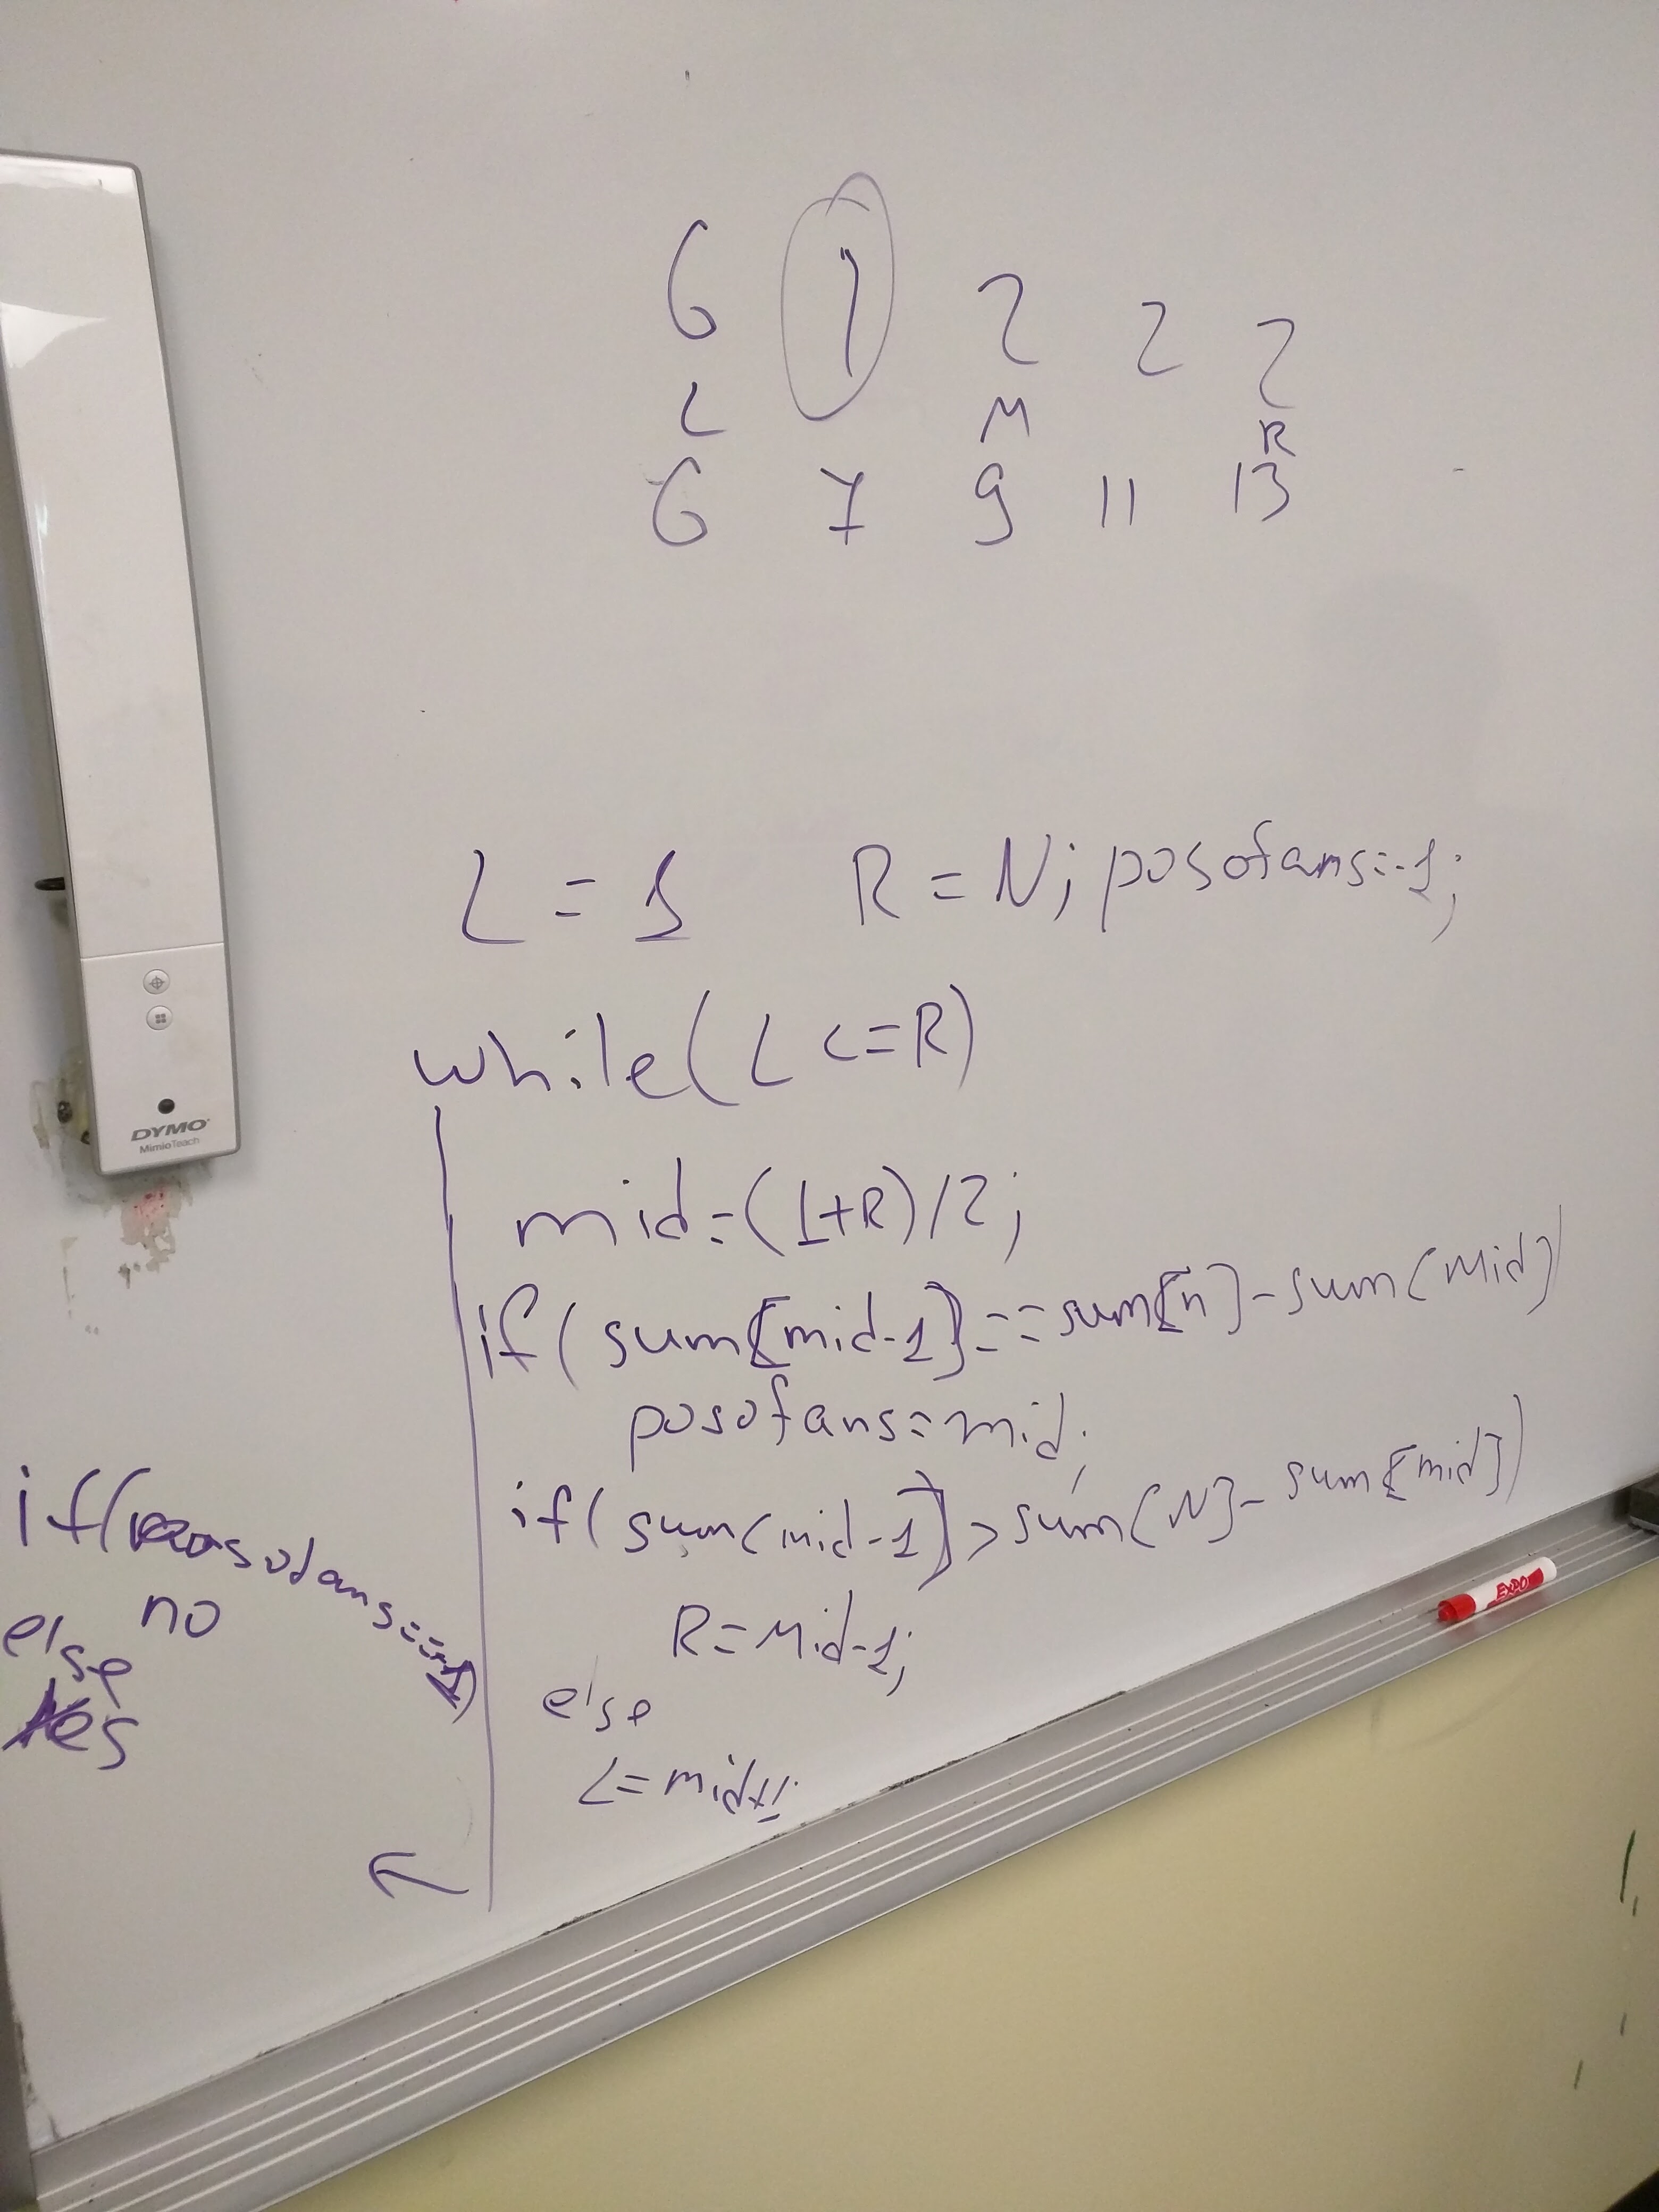 6 1 2 2 2
L M R
6 7 9 11 13
L = 1 R = N; posofans=-1;
while(L <=R)
mid=(1+R)/2;
if(sum[mid-1]==sum[n]-sum(mid)
posofans=mid;
if(sum(mid-1]>sum(N]-sum[mid])
R=Mid-1;
else
L=mid+1;
if(posofans==-1)
no
else
Yes
DYMO
MimioTeach
EXPO